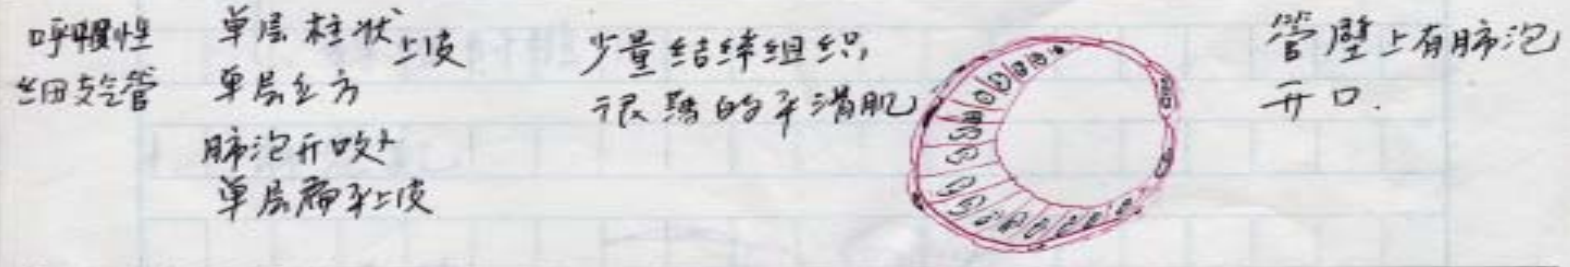 呼吸性
细支气管
单层柱状上皮
单层立方
肺泡开口处
单层扁平上皮
少量结缔组织,
很薄的平滑肌
管壁上有肺泡
开口.